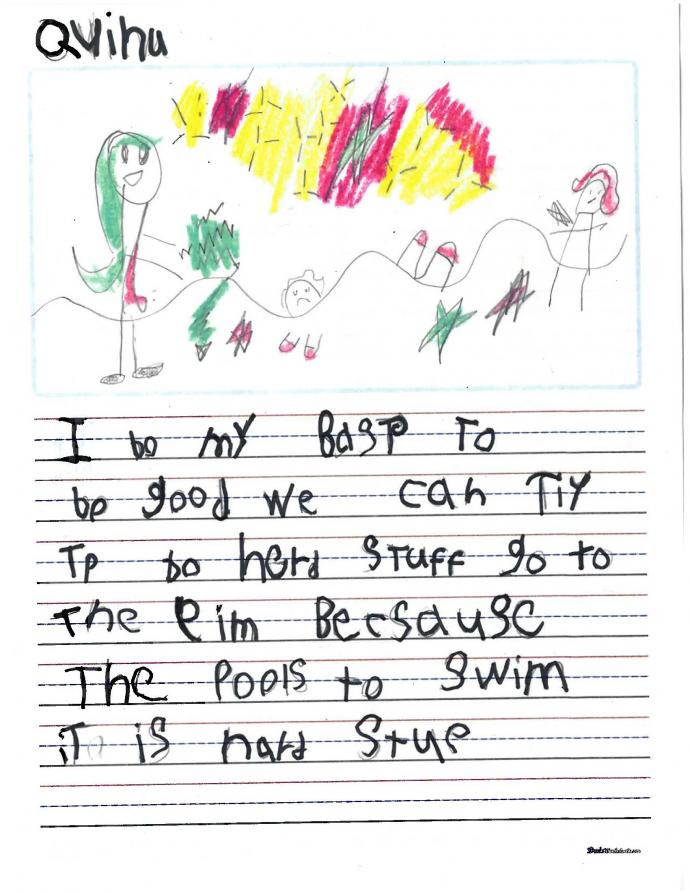 Qvihu
I bo my BasT To
be good we can TiY
Tp bo herd STuFF go to
The eim Becsause
The Pools to swim
iT is hard Stue